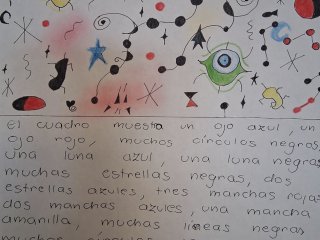 el cuadro muesta un ojo azul, un
ojo rojo, muchos círculos negros
una luna azul, una luna negra
muchas estrellas negras, dos
estrellas azules, tres manchas rojas
dos manchas azules, una mancha
amarilla, muchas líneas negras
muchos